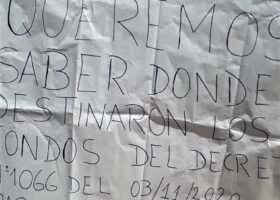 QUEREMOS
SABER DONDE
DESTINARON LOS
FONDOS DEL DECRE
1066 DEL 03/11/2020